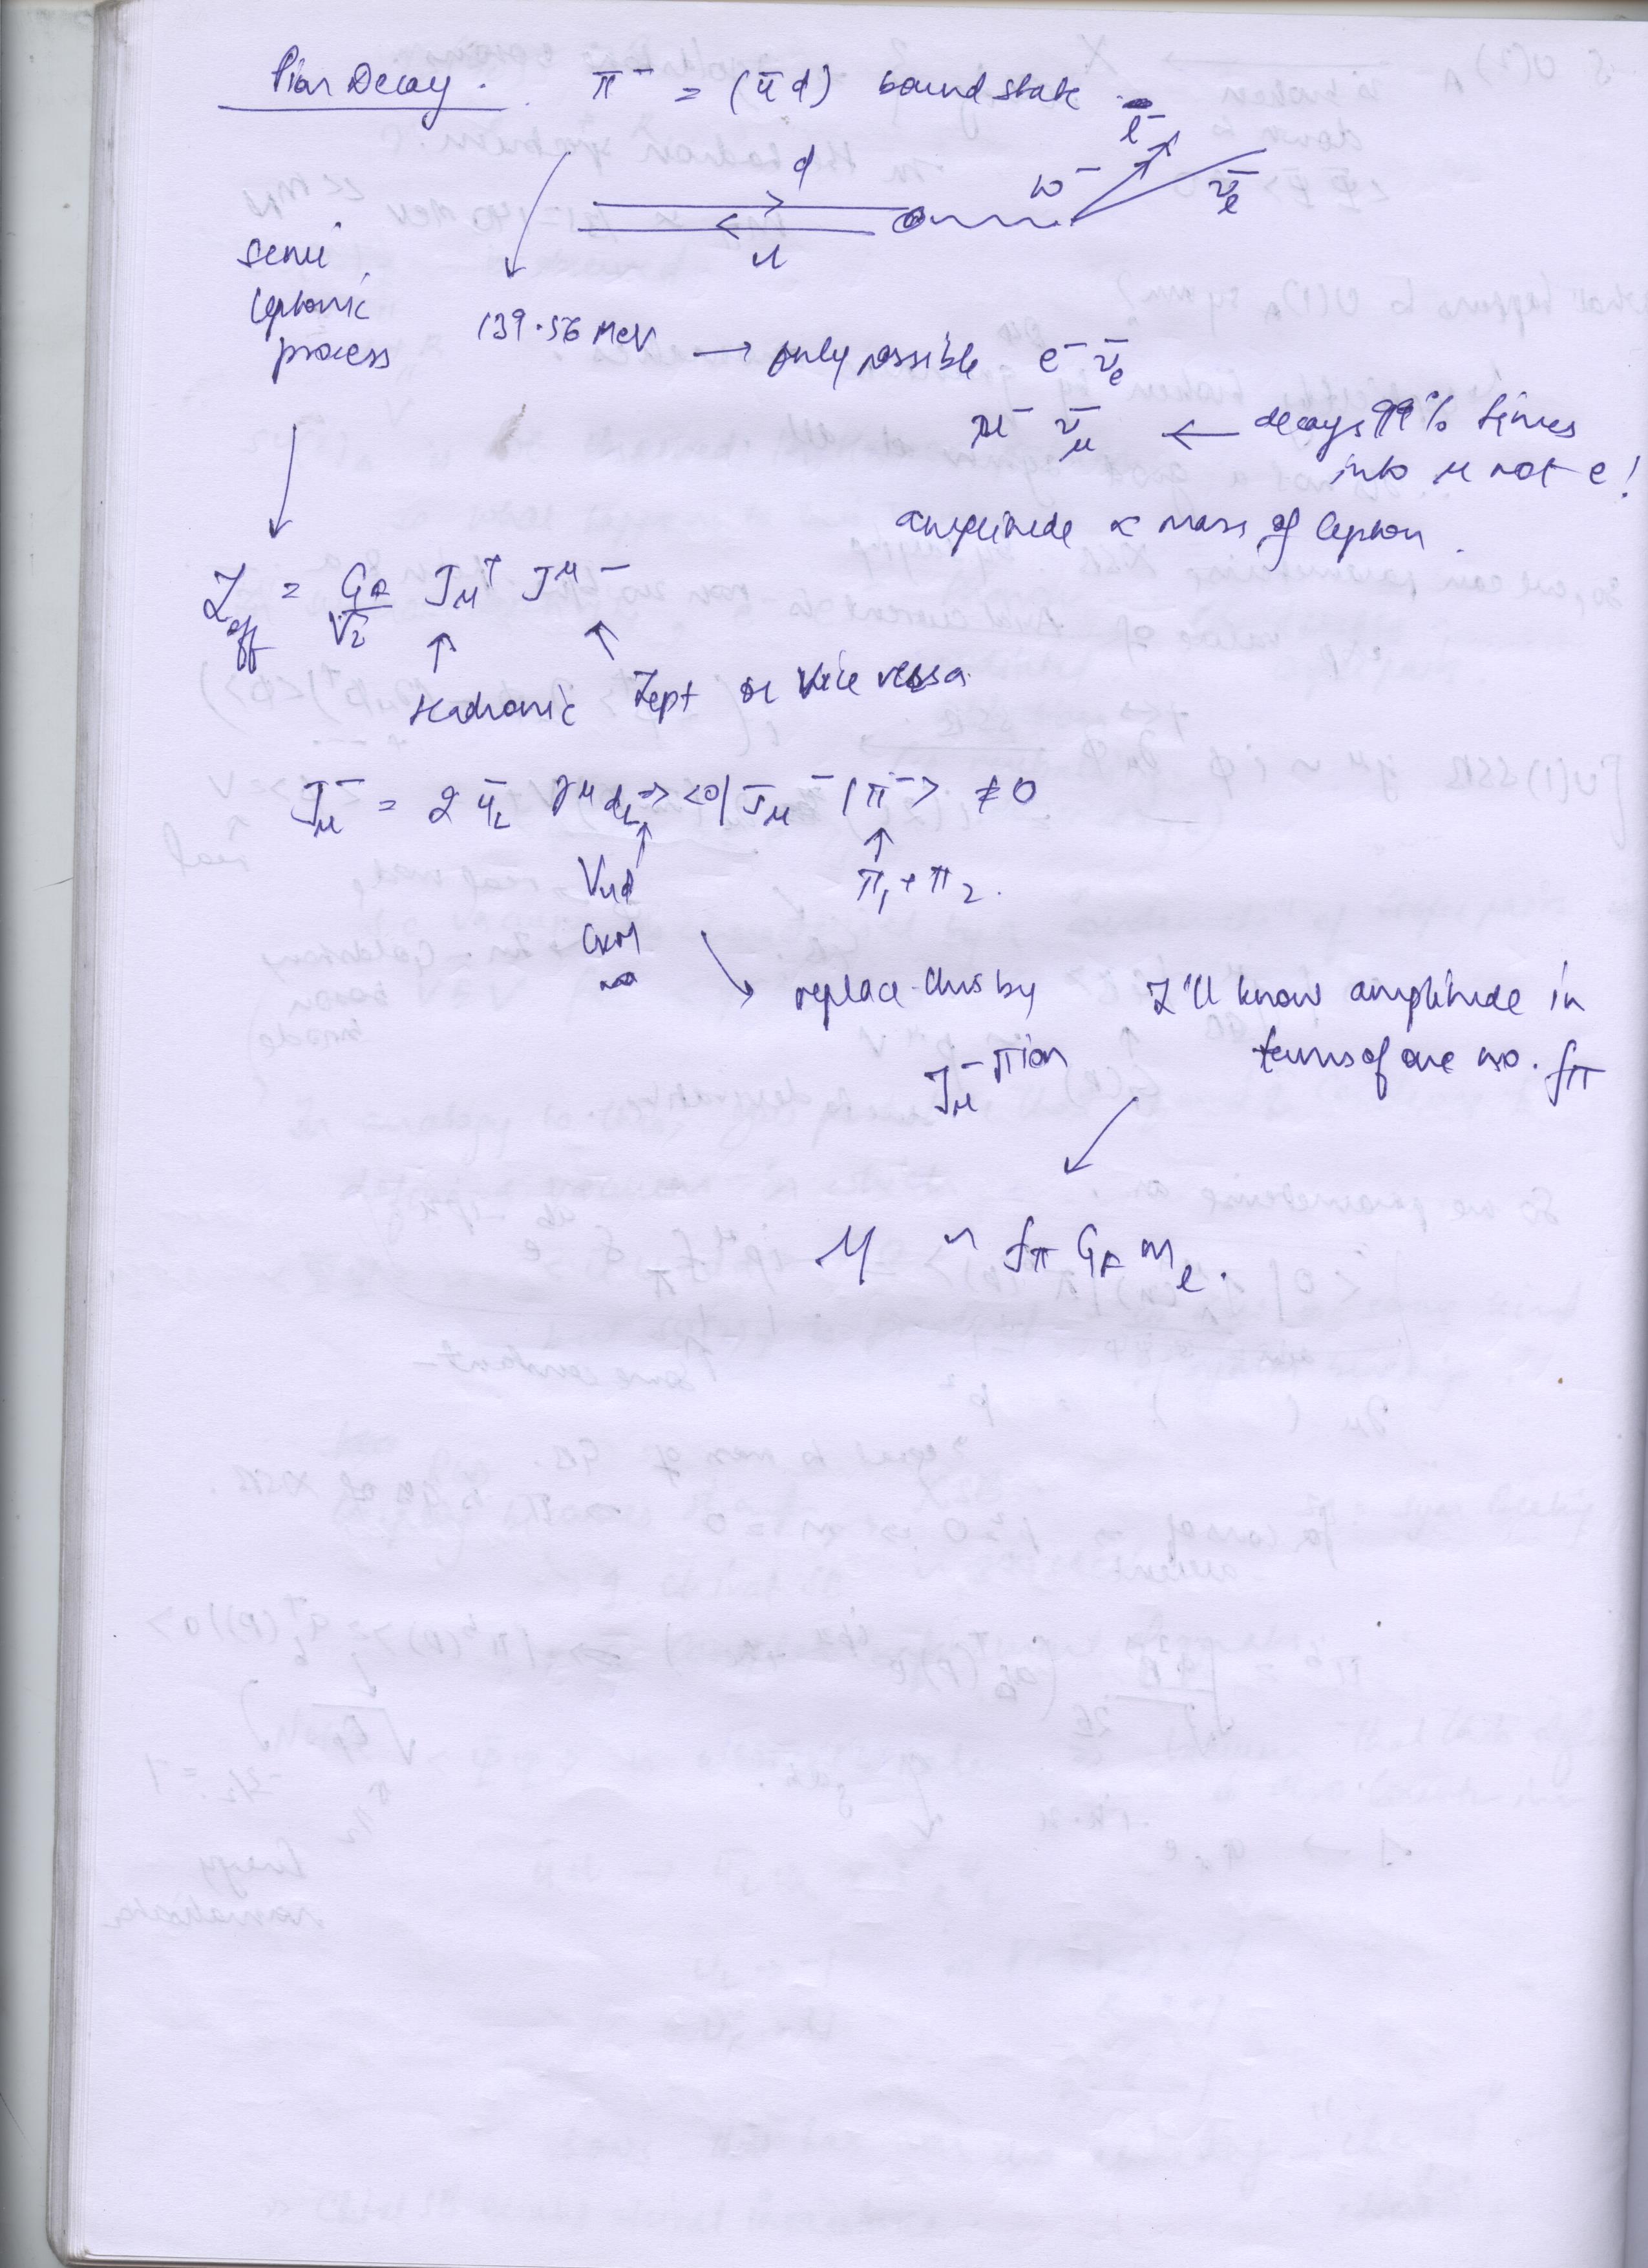 Pion Decay. π⁻ = (ū d) bound state
l⁻
d
W⁻
ν̄_l
u
semi
leptonic
process
139.56 MeV → only possible e⁻ ν̄_e
μ⁻ ν̄_μ ← decays 99% times
into μ not e!
amplitude ∝ mass of lepton.
ℒ_eff = G_F/√2 J_μ⁺ J^μ⁻
↑ ↑
Hadronic Lept or vice versa
J_μ⁻ = 2 ū_L γ^μ d_L ⇒ <0| J_μ⁻ |π⁻> ≠ 0
V_ud
CKM
↑
π₁ + π₂.
replace this by
J_μ⁻ pion
I'll know amplitude in
terms of one no. f_π
M ~ f_π G_F m_l.